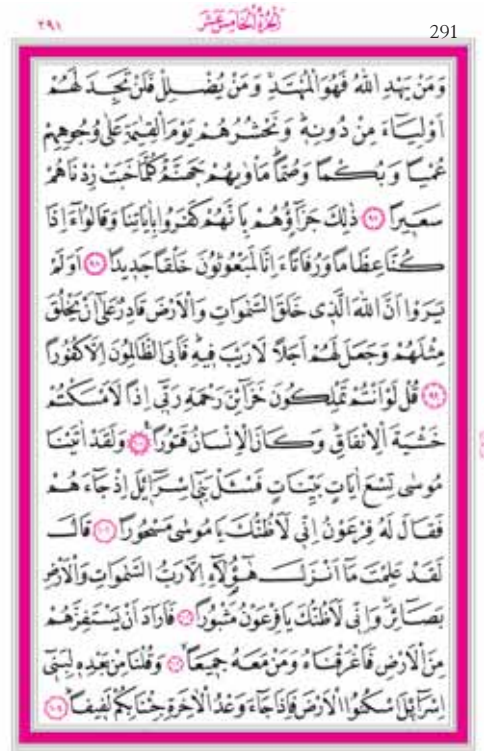 ٢٩١
اَلْجُزْءُ الْخَامِسَ عَشَرَ
291
وَمَنْ يَهْدِ اللّٰهُ فَهُوَ الْمُهْتَدِۚ وَمَنْ يُضْلِلْ فَلَنْ تَجِدَ لَهُمْ
اَوْلِيَٓاءَ مِنْ دُونِه۪ۜ وَنَحْشُرُهُمْ يَوْمَ الْقِيٰمَةِ عَلٰى وُجُوهِهِمْ
عُمْياً وَبُكْماً وَصُماًّۜ مَأْوٰيهُمْ جَهَنَّمُۜ كُلَّمَا خَبَتْ زِدْنَاهُمْ
سَع۪يراً ﴿٩٧﴾ ذٰلِكَ جَزَٓاؤُ۬هُمْ بِاَنَّهُمْ كَفَرُوا بِاٰيَاتِنَا وَقَالُٓوا ءَاِذَا
كُنَّا عِظَاماً وَرُفَاتاً ءَاِنَّا لَمَبْعُوثُونَ خَلْقاً جَد۪يداً ﴿٩٨﴾ اَوَلَمْ
يَرَوْا اَنَّ اللّٰهَ الَّذ۪ي خَلَقَ السَّمٰوَاتِ وَالْاَرْضَ قَادِرٌ عَلٰٓى اَنْ يَخْلُقَ
مِثْلَهُمْ وَجَعَلَ لَهُمْ اَجَلاً لَا رَيْبَ ف۪يهِۜ فَاَبَى الظَّالِمُونَ اِلَّا كُفُوراً
﴿٩٩﴾ قُلْ لَوْ اَنْتُمْ تَمْلِكُونَ خَزَٓائِنَ رَحْمَةِ رَبّ۪ٓي اِذاً لَاَمْسَكْتُمْ
خَشْيَةَ الْاِنْفَاقِۜ وَكَانَ الْاِنْسَانُ قَتُوراً۟ ﴿١٠٠﴾ وَلَقَدْ اٰتَيْنَا
مُوسٰى تِسْعَ اٰيَاتٍ بَيِّنَاتٍ فَسْـَٔلْ بَن۪ٓي اِسْرَٓائ۪لَ اِذْ جَٓاءَهُمْ
فَقَالَ لَهُ فِرْعَوْنُ اِنّ۪ي لَاَظُنُّكَ يَا مُوسٰى مَسْحُوراً ﴿١٠١﴾ قَالَ
لَقَدْ عَلِمْتَ مَٓا اَنْزَلَ هٰٓؤُ۬لَٓاءِ اِلَّا رَبُّ السَّمٰوَاتِ وَالْاَرْضِ
بَصَٓائِرَۚ وَاِنّ۪ي لَاَظُنُّكَ يَا فِرْعَوْنُ مَثْبُوراً ﴿١٠٢﴾ فَاَرَادَ اَنْ يَسْتَفِزَّهُمْ
مِنَ الْاَرْضِ فَاَغْرَقْنَاهُ وَمَنْ مَعَهُ جَم۪يعاًۙ ﴿١٠٣﴾ وَقُلْنَا مِنْ بَعْدِه۪ لِبَن۪ٓي
اِسْرَٓائ۪لَ اسْكُنُوا الْاَرْضَ فَاِذَا جَٓاءَ وَعْدُ الْاٰخِرَةِ جِئْنَا بِكُمْ لَف۪يفاًۜ ﴿١٠٤﴾